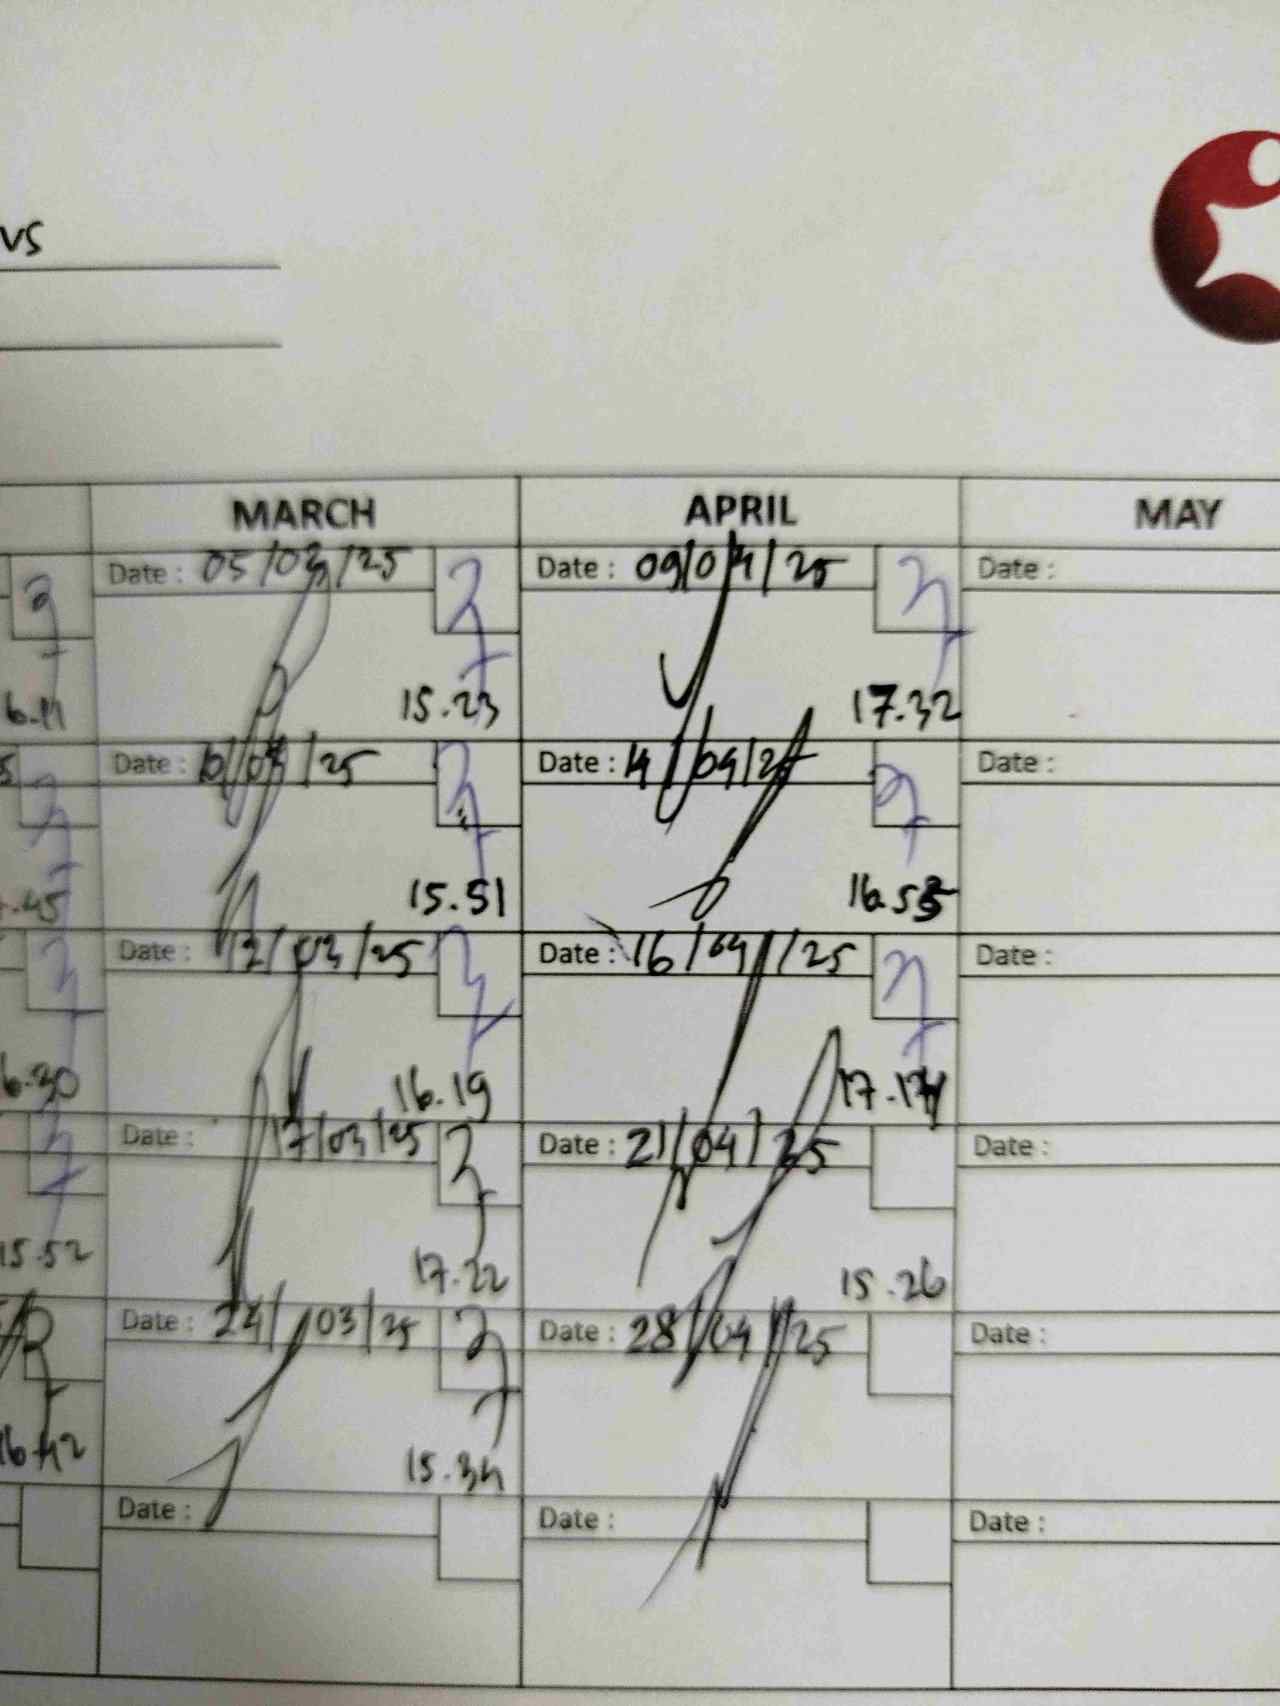 vs
MARCH APRIL MAY
Date : 05/03/25 Date : 09/04/25 Date :
6.11 15.23 17.32
Date : 10/03/25 Date : 14/04/25 Date :
.45 15.51 16.53
Date : 12/03/25 Date : 16/04/25 Date :
6.30 16.19 17.14
Date : 17/03/25 Date : 21/04/25 Date :
15.52 17.22 15.26
Date : 24/03/25 Date : 28/04/25 Date :
16.42 15.34
Date : Date : Date :